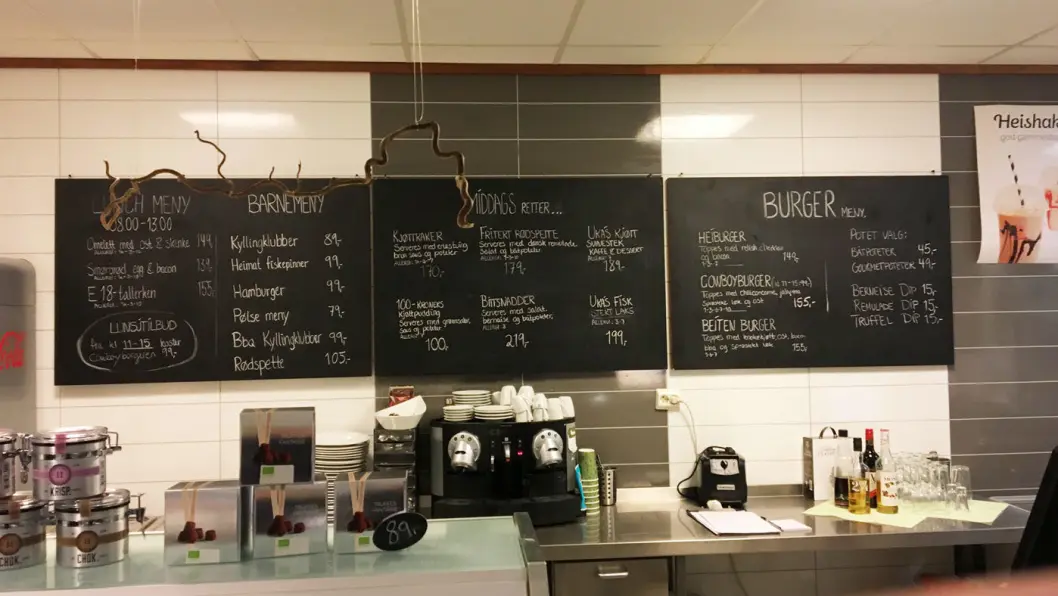 MENY
08:00-13:00
Omelett med ost & skinke 149,-
egg & bacon 139,-
E18-tallerken 155,-
LUNSJTILBUD
kl 11-15
Cowboyburgeren 99,-
BARNEMENY
Kyllingklubber 89,-
Heimat fiskepinner 99,-
Hamburger 99,-
Pølse meny 79,-
Bbq Kyllingklubber 99,-
Rødspette 105,-
MIDDAGS RETTER...
KJØTTKAKER
Serveres med
brun saus og poteter
170,-
100-KRONERS
Kjøttpudding
Serveres med grønnsaker,
saus og poteter
100,-
FRITERT RØDSPETTE
Serveres med dansk remulade,
Salat og båtpoteter
179,-
BIFFSNADDER
Serveres med salat,
bernaise og båtpoteter,
219,-
UKAS KJØTT
189,-
UKAS FISK
STEKT LAKS
199,-
BURGER MENY
HEIBURGER
Toppes med relish, cheddar
og bacon 149,-
COWBOYBURGER (kl 11-15:99)
Toppes med chilicorncarne, jalapeños
løk og ost 155,-
BEITEN BURGER
Toppes med
bbq og løk 155,-
POTET VALG:
BÅTPOTETER 45,-
GOURMETPOTETER 49,-
BERNEISE DIP 15,-
REMULADE DIP 15,-
TRØFFEL DIP 15,-
Heishak
KRISP
CHOK
CHOK
89,-